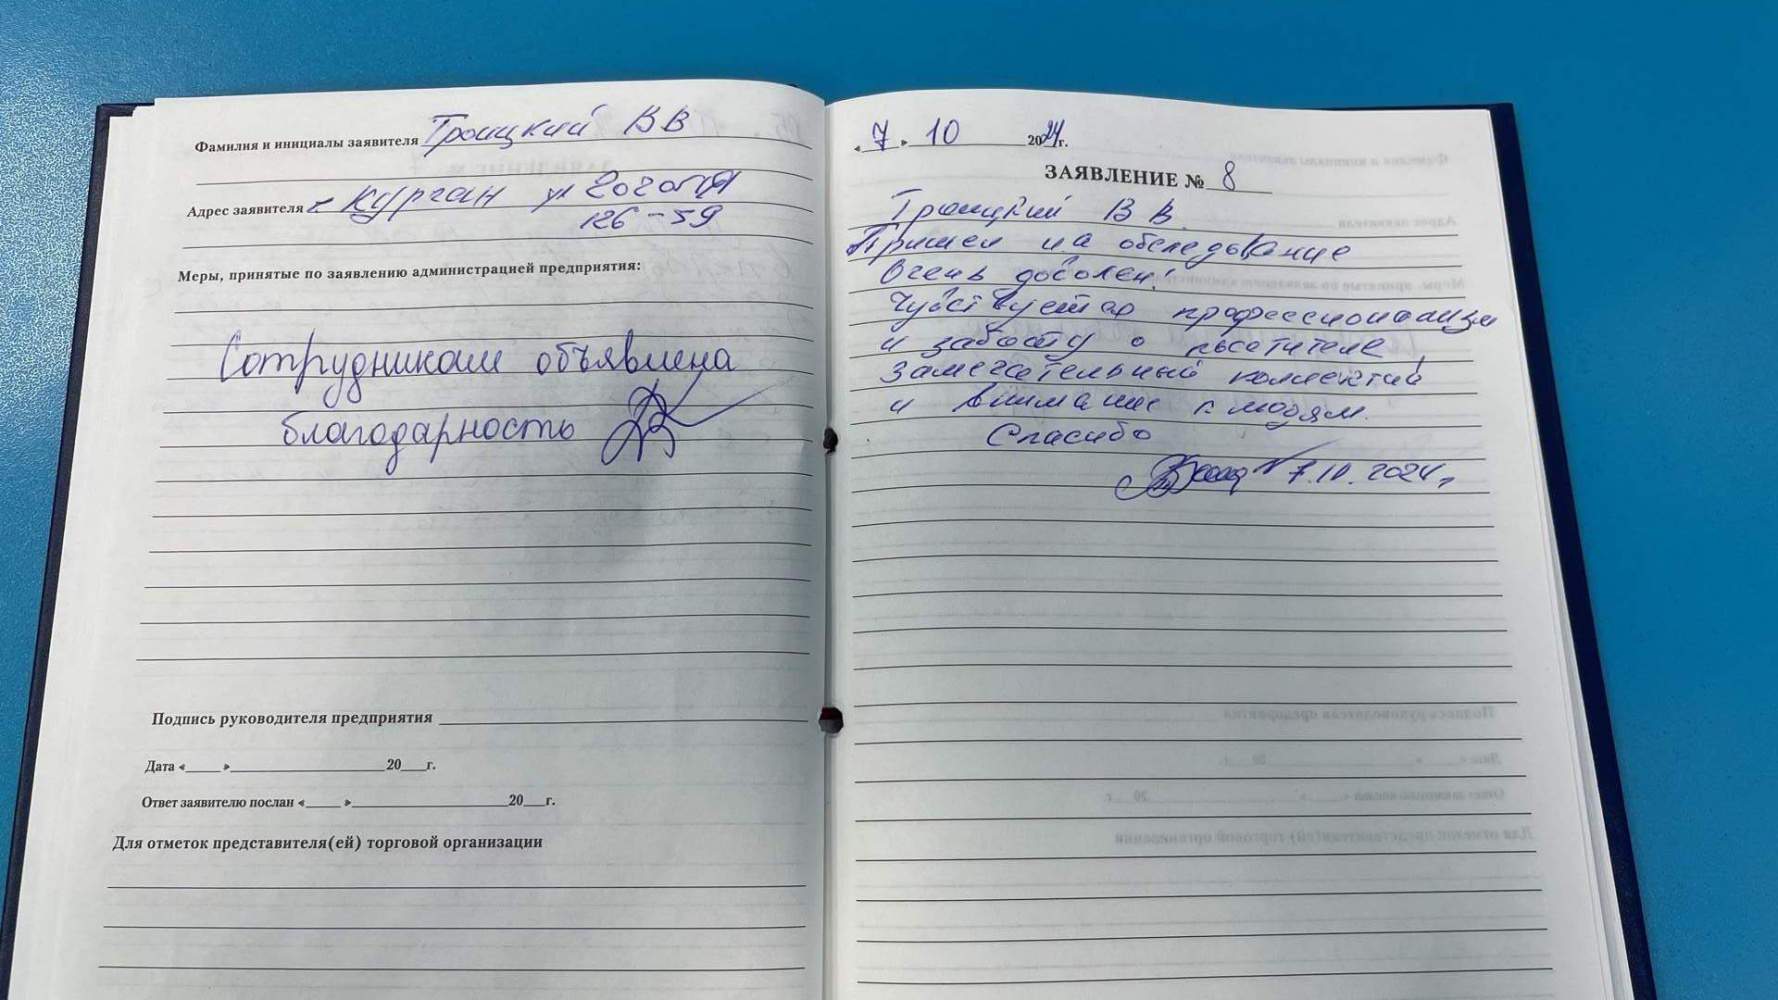 Фамилия и инициалы заявителя Троицкий В В
Адрес заявителя г Курган ул Гоголя
126-59
Меры, принятые по заявлению администрацией предприятия:
Сотрудникам объявлена
благодарность
Подпись руководителя предприятия
Дата «___» ___ 20__г.
Ответ заявителю послан «___» ___ 20__г.
Для отметок представителя(ей) торговой организации
«7» 10 2024г.
ЗАЯВЛЕНИЕ № 8
Троицкий В В.
Пришел на обследование
Очень доволен!
Чувствуется профессионализм
и заботу о посетителе,
замечательный коллектив
и внимание к людям.
Спасибо
7.10.2024г.